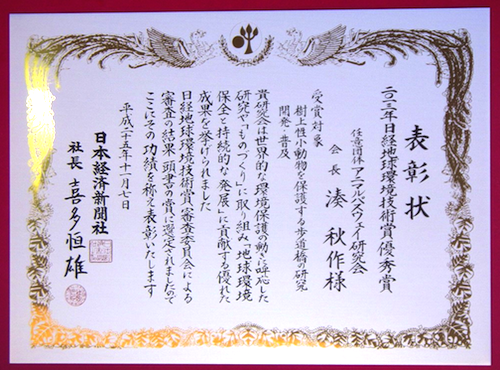 表彰状
二〇一三年日経地球環境技術賞優秀賞
任意団体 アニマルパスウェイ研究会
会長 湊 秋作様
受賞対象
樹上性小動物を保護する歩道橋の研究
開発・普及
貴研究会は世界的な環境保護の動きに呼応した
研究や「ものづくり」に取り組み「地球環境
保全と持続的な発展」に貢献する優れた
成果を挙げられました
日経地球環境技術賞審査委員会による
審査の結果、頭書の賞に選定されましたので
ここにその功績を称え表彰いたします
平成二十五年十一月七日
日本経済新聞社
社長 喜多恒雄